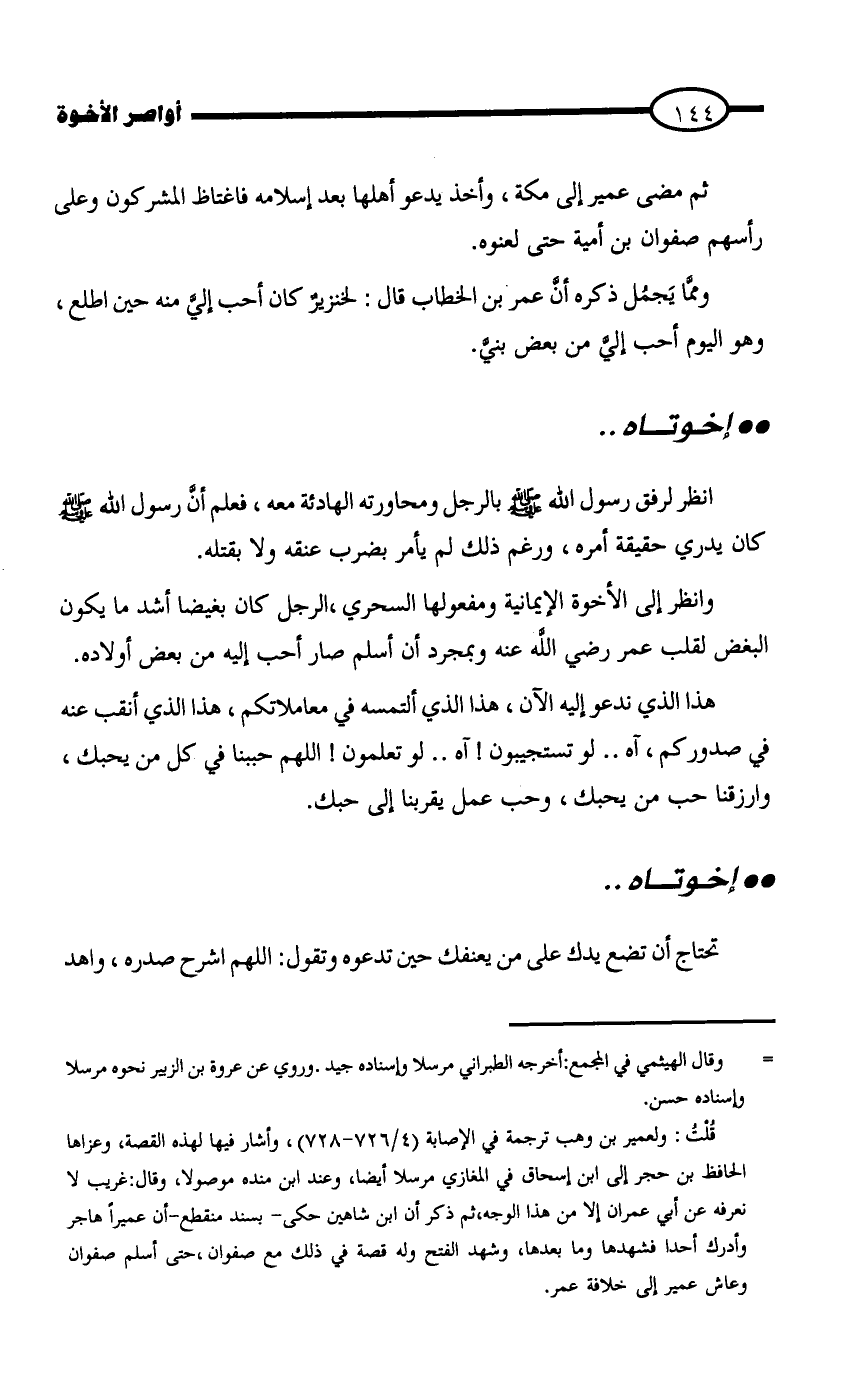 ١٤٤ أواصر الأخوة
ثم مضى عمير إلى مكة ، وأخذ يدعو أهلها بعد إسلامه فاغتاظ المشركون وعلى
رأسهم صفوان بن أمية حتى لعنوه.
وممَّا يَجمُل ذكره أنَّ عمر بن الخطاب قال : لخنزيرٌ كان أحب إليَّ منه حين اطلع ،
وهو اليوم أحب إليَّ من بعض بنيَّ.
●● إخـوتـــاه ..
انظر لرفق رسول الله ﷺ بالرجل ومحاورته الهادئة معه ، فعلم أنَّ رسول الله ﷺ
كان يدري حقيقة أمره ، ورغم ذلك لم يأمر بضرب عنقه ولا بقتله.
وانظر إلى الأخوة الإيمانية ومفعولها السحري ،الرجل كان بغيضا أشد ما يكون
البغض لقلب عمر رضي اللَّه عنه وبمجرد أن أسلم صار أحب إليه من بعض أولاده.
هذا الذي ندعو إليه الآن ، هذا الذي ألتمسه في معاملاتكم ، هذا الذي أنقب عنه
في صدوركم ، آه .. لو تستجيبون ! آه .. لو تعلمون ! اللهم حببنا في كل من يحبك ،
وارزقنا حب من يحبك ، وحب عمل يقربنا إلى حبك.
●● إخـوتـــاه ..
تحتاج أن تضع يدك على من يعنفك حين تدعوه وتقول: اللهم اشرح صدره ، واهد
= وقال الهيثمي في المجمع:أخرجه الطبراني مرسلا وإسناده جيد .وروي عن عروة بن الزبير نحوه مرسلا
وإسناده حسن.
قُلْتُ : ولعمير بن وهب ترجمة في الإصابة (٤/٧٢٦-٧٢٨) ، وأشار فيها لهذه القصة، وعزاها
الحافظ بن حجر إلى ابن إسحاق في المغازي مرسلا أيضا، وعند ابن منده موصولا، وقال:غريب لا
نعرفه عن أبي عمران إلا من هذا الوجه،ثم ذكر أن ابن شاهين حكى- بسند منقطع-أن عميراً هاجر
وأدرك أحدا فشهدها وما بعدها، وشهد الفتح وله قصة في ذلك مع صفوان ،حتى أسلم صفوان
وعاش عمير إلى خلافة عمر.